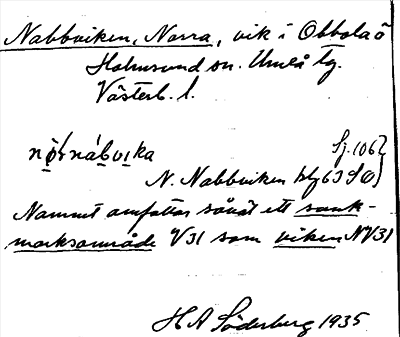 Nabbviken, Norra, vik i Obbola ö
Holmsund sn. Umeå tg.
Västerb. l.
Sj. 106
N. Nabbviken blg 63 SO
Namnet omfattar såväl ett sank-
marksområde V31 som viken NV31
H A Söderberg 1935